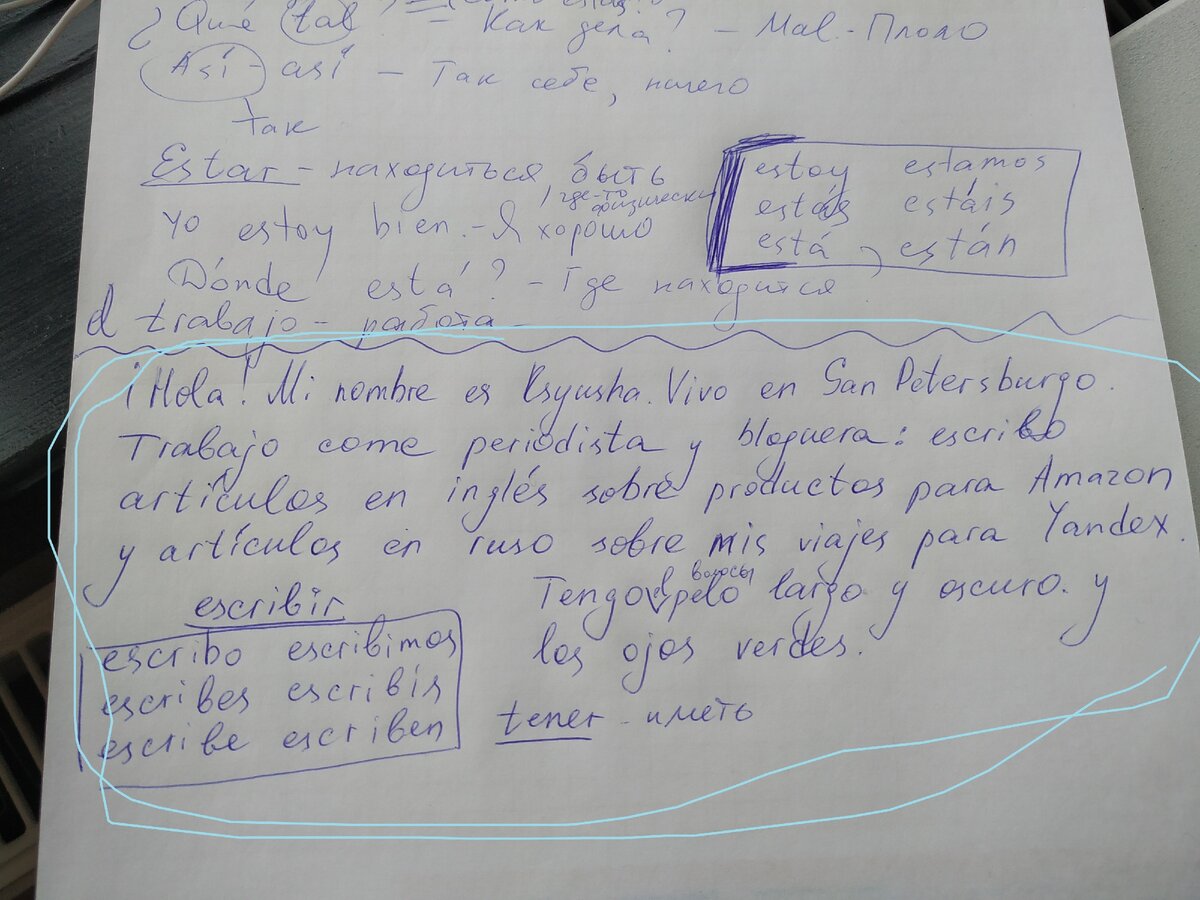 ¿Qué tal? = ¿Cómo estás? - Как дела? - Mal. - Плохо
Así - así - Так себе, ничего
Так
Estar - находиться, быть
где-то физически
Yo estoy bien. - Я хорошо
estoy estamos
estás estáis
está están
Dónde está? - Где находится
el trabajo - работа
¡Hola! Mi nombre es Ksyusha. Vivo en San Petersburgo.
Trabajo come periodista y bloguera: escribo
artículos en inglés sobre productos para Amazon
y artículos en ruso sobre mis viajes para Yandex.
волосы
Tengo el pelo largo y oscuro. y
los ojos verdes.
escribir
escribo escribimos
escribes escribís
escribe escriben
tener - иметь